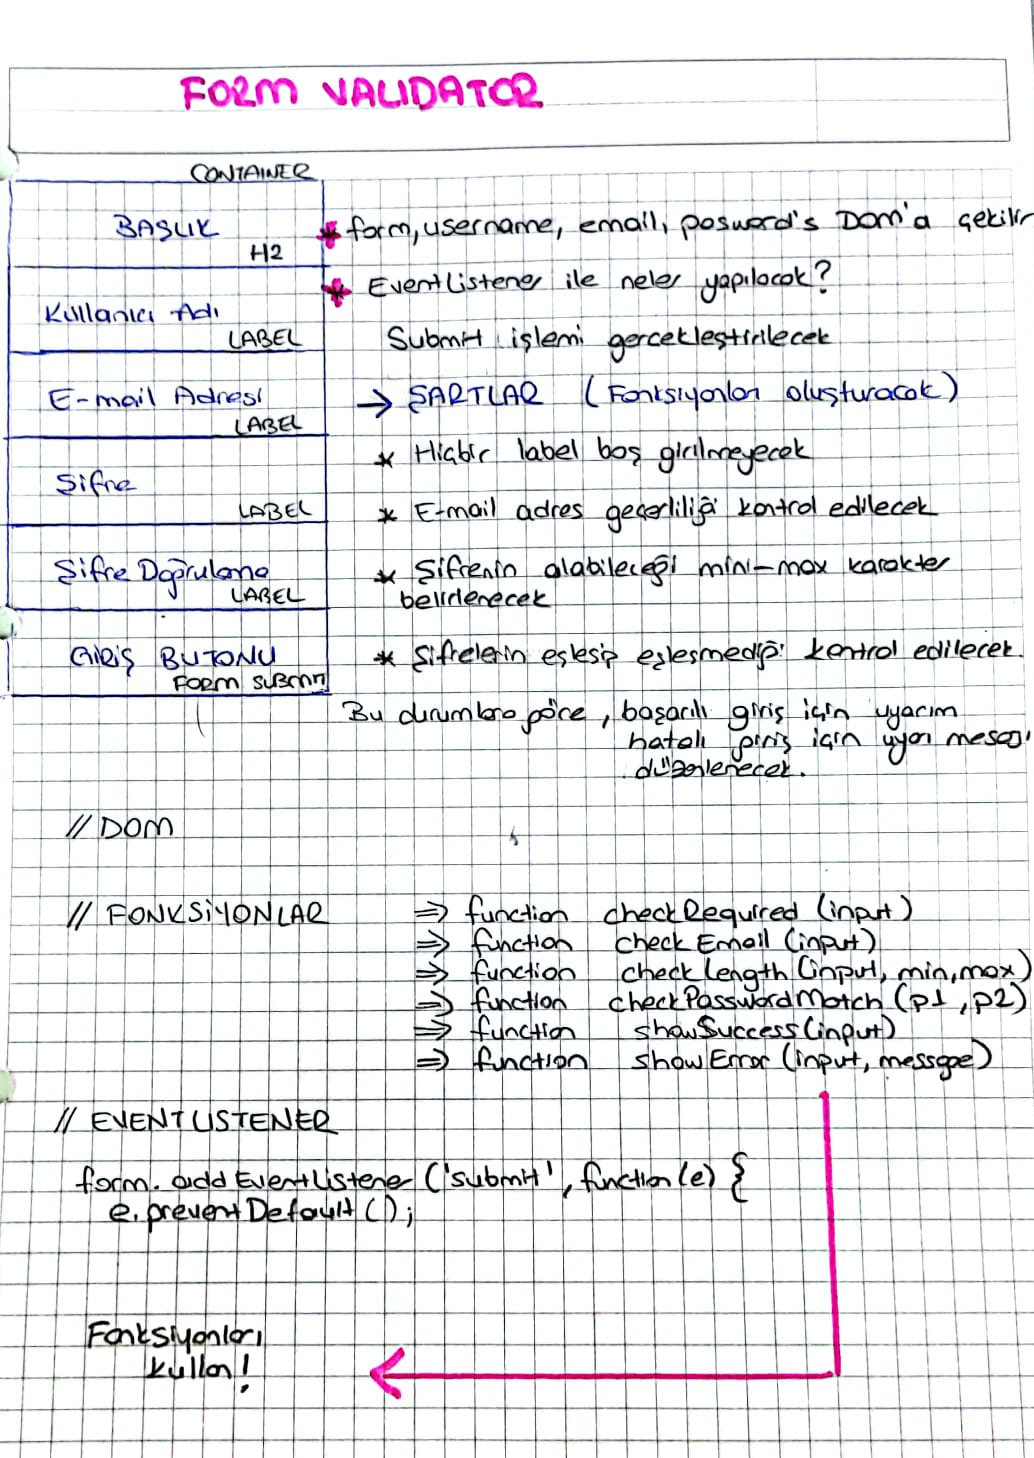 FORM VALIDATOR
CONTAINER
BAŞLIK
H2
Kullanıcı Adı
LABEL
E-mail Adresi
LABEL
Şifre
LABEL
Şifre Doğrulama
LABEL
GİRİŞ BUTONU
FORM SUBMIT
* form, username, email, pasword's Dom'a çekilir
* EventListener ile neler yapılacak?
Submit işlemi gerçekleştirilecek
→ ŞARTLAR (Fonksiyonları oluşturacak)
* Hiçbir label boş girilmeyecek
* E-mail adres geçerliliği kontrol edilecek
* Şifrenin alabileceği mini-max karakter
belirlenecek
* Şifrelerin eşleşip eşleşmediği kontrol edilecek.
Bu durumlara göre, başarılı giriş için
hatalı giriş için uyarı mesajı
düzenlenecek.
// DOM
// FONKSİYONLAR
⇒ function checkRequired (input)
⇒ function checkEmail (input)
⇒ function checkLength (input, min, max)
⇒ function checkPasswordMatch (p1, p2)
⇒ function showSuccess (input)
⇒ function showError (input, messgae)
// EVENTLISTENER
form.addEventListener ('submit', function (e) {
e.preventDefault ();
Fonksiyonları
kullan!